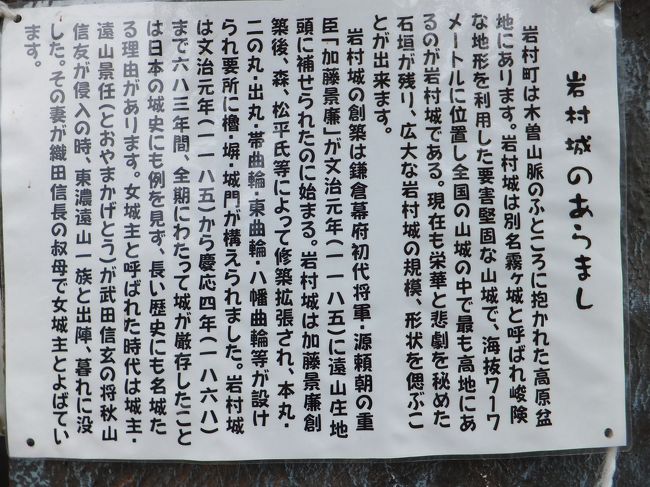 岩村城のあらまし
岩村町は木曽山脈のふところに抱かれた高原盆
地にあります。岩村城は別名霧ヶ城と呼ばれ峻険
な地形を利用した要害堅固な山城で、海抜７１７
メートルに位置し全国の山城の中で最も高地にあ
るのが岩村城である。現在も栄華と悲劇を秘めた
石垣が残り、広大な岩村城の規模、形状を偲ぶこ
とが出来ます。
岩村城の創築は鎌倉幕府初代将軍・源頼朝の重
臣「加藤景廉」が文治元年（一一八五）に遠山庄地
頭に補せられたのに始まる。岩村城は加藤景廉創
築後、森、松平氏等によって修築拡張され、本丸・
二の丸・出丸・帯曲輪・東曲輪・八幡曲輪等が設け
られ要所に櫓・塀・城門が構えられました。岩村城
は文治元年（一一八五）から慶応四年（一八六八）
まで六八三年間、全期にわたって城が厳存したこと
は日本の城史にも例を見ず、長い歴史にも名城た
る理由があります。女城主と呼ばれた時代は城主・
遠山景任（とおやまかげとう）が武田信玄の将秋山
信友が侵入の時、東濃遠山一族と出陣、暮れに没
した。その妻が織田信長の叔母で女城主とよばてい
ます。